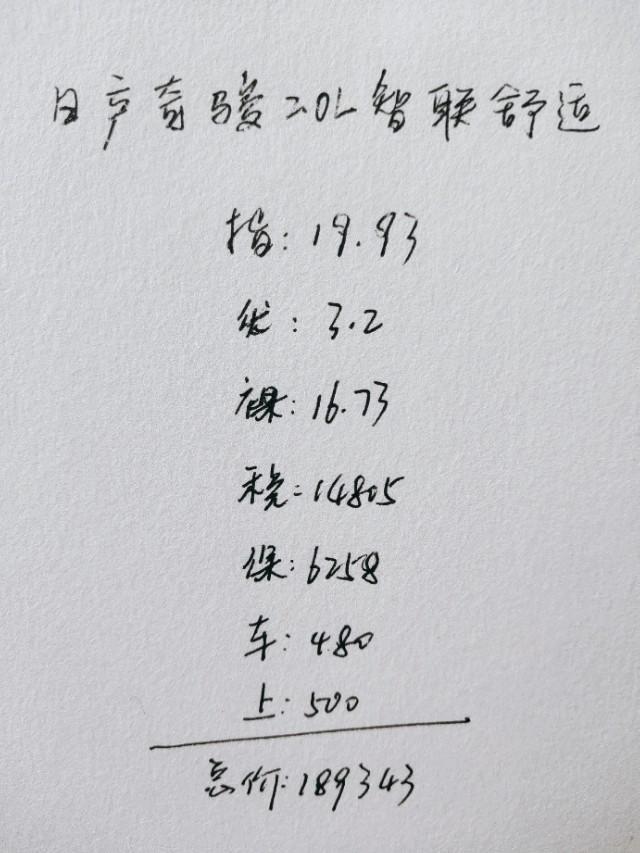 日产奇骏2.0L智联舒适
指: 19.93
优: 3.2
裸: 16.73
税: 14805
保: 6258
车: 480
上: 500
总价: 189343